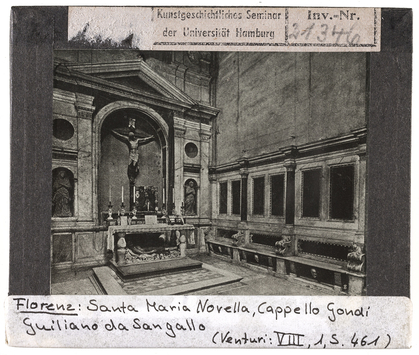 Kunstgeschichtliches Seminar
der Universität Hamburg
Inv.-Nr.
21346
Florenz: Santa Maria Novella, Cappello Gondi
Guiliano da Sangallo
(Venturi: VIII, 1, S. 461)